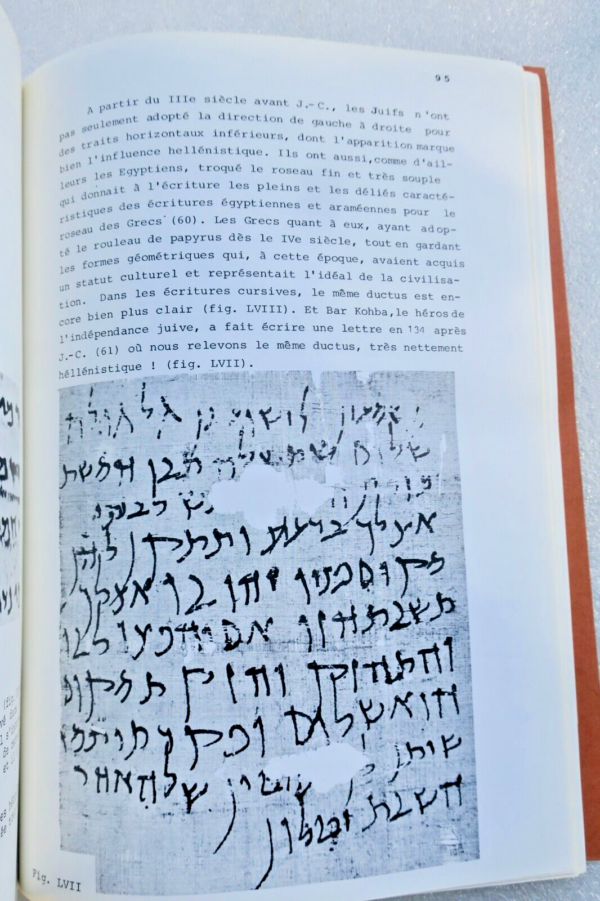 95
A partir du IIIe siècle avant J.-C., les Juifs n'ont
pas seulement adopté la direction de gauche à droite pour
des traits horizontaux inférieurs, dont l'apparition marque
bien l'influence hellénistique. Ils ont aussi,comme d'ail-
leurs les Egyptiens, troqué le roseau fin et très souple
qui donnait à l'écriture les pleins et les déliés caracté-
ristiques des écritures égyptiennes et araméennes pour le
roseau des Grecs (60). Les Grecs quant à eux, ayant adop-
té le rouleau de papyrus dès le IVe siècle, tout en gardant
les formes géométriques qui, à cette époque, avaient acquis
un statut culturel et représentait l'idéal de la civilisa-
tion. Dans les écritures cursives, le même ductus est en-
core bien plus clair (fig. LVIII). Et Bar Kohba,le héros de
l'indépendance juive, a fait écrire une lettre en 134 après
J.-C. (61) où nous relevons le même ductus, très nettement
héllénistique ! (fig. LVII).
לישוע בן גלגולה
שלום
אצלך בדעת ותתקן להן
יהו בו אצלך
תשבת הזו אם יחפצו לבו
והתחזק וחזק
שלום
שיתן
השבת יטלון
Fig. LVII